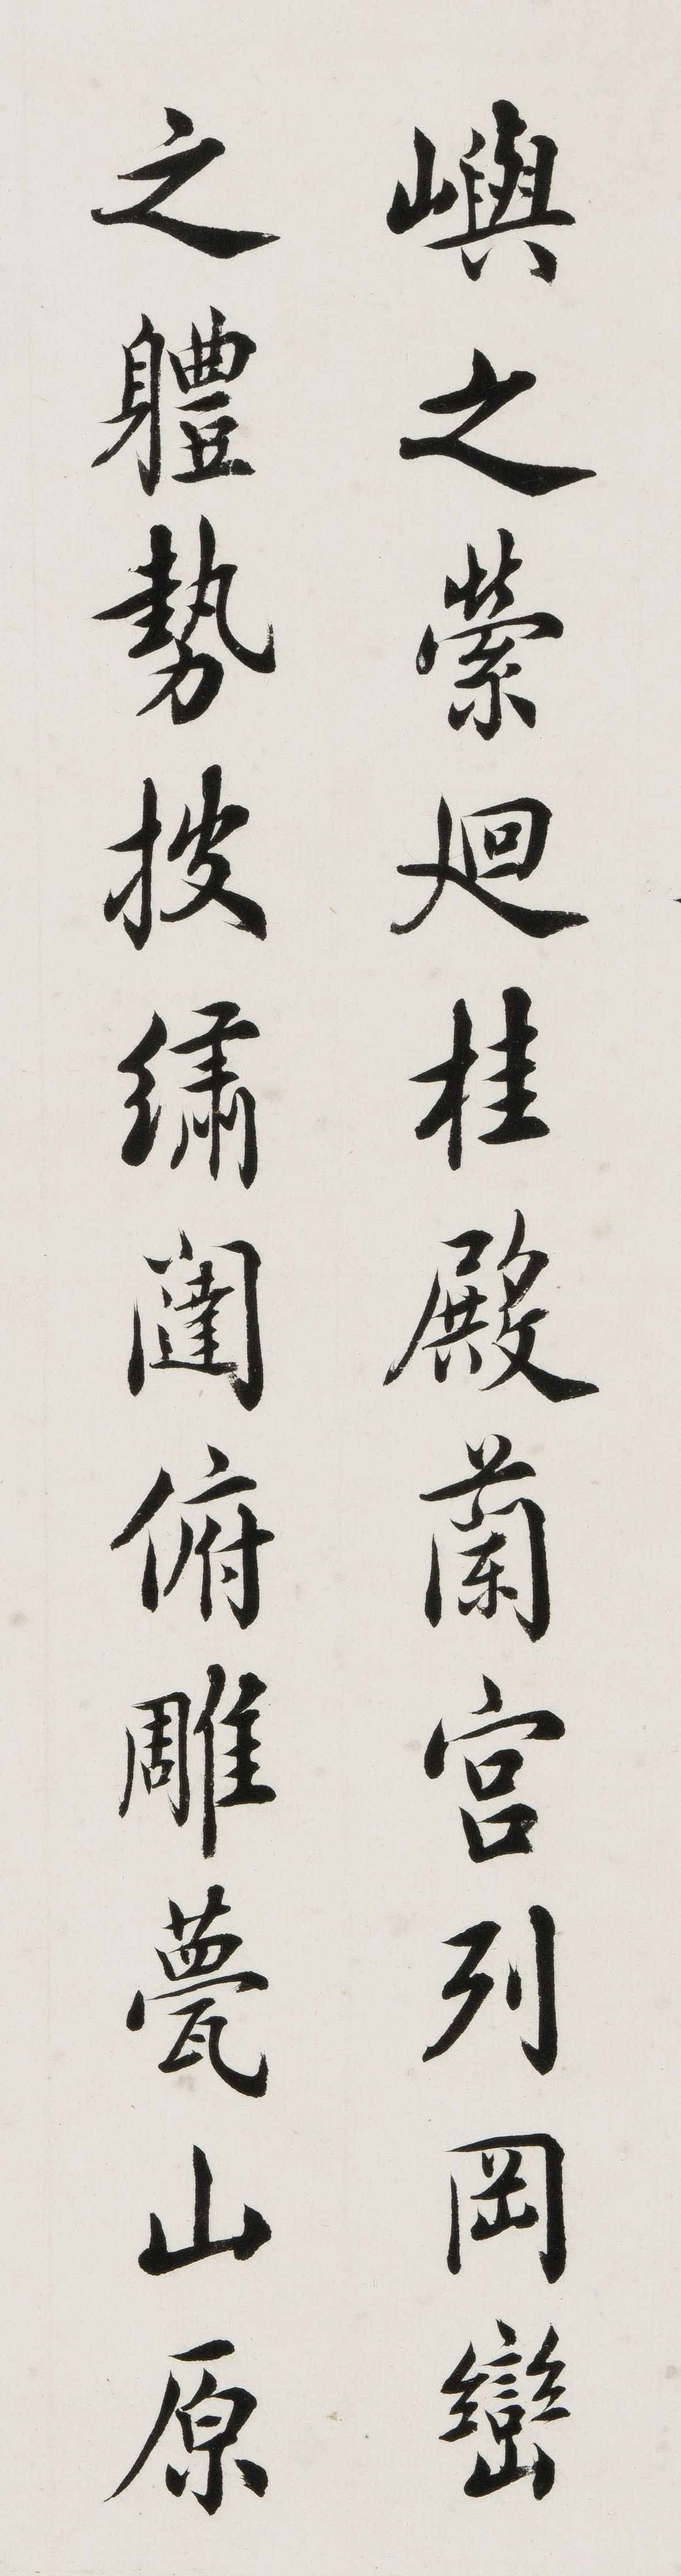 嶼之縈廻桂殿蘭宮列岡巒
之軆勢披繡闥俯雕甍山原